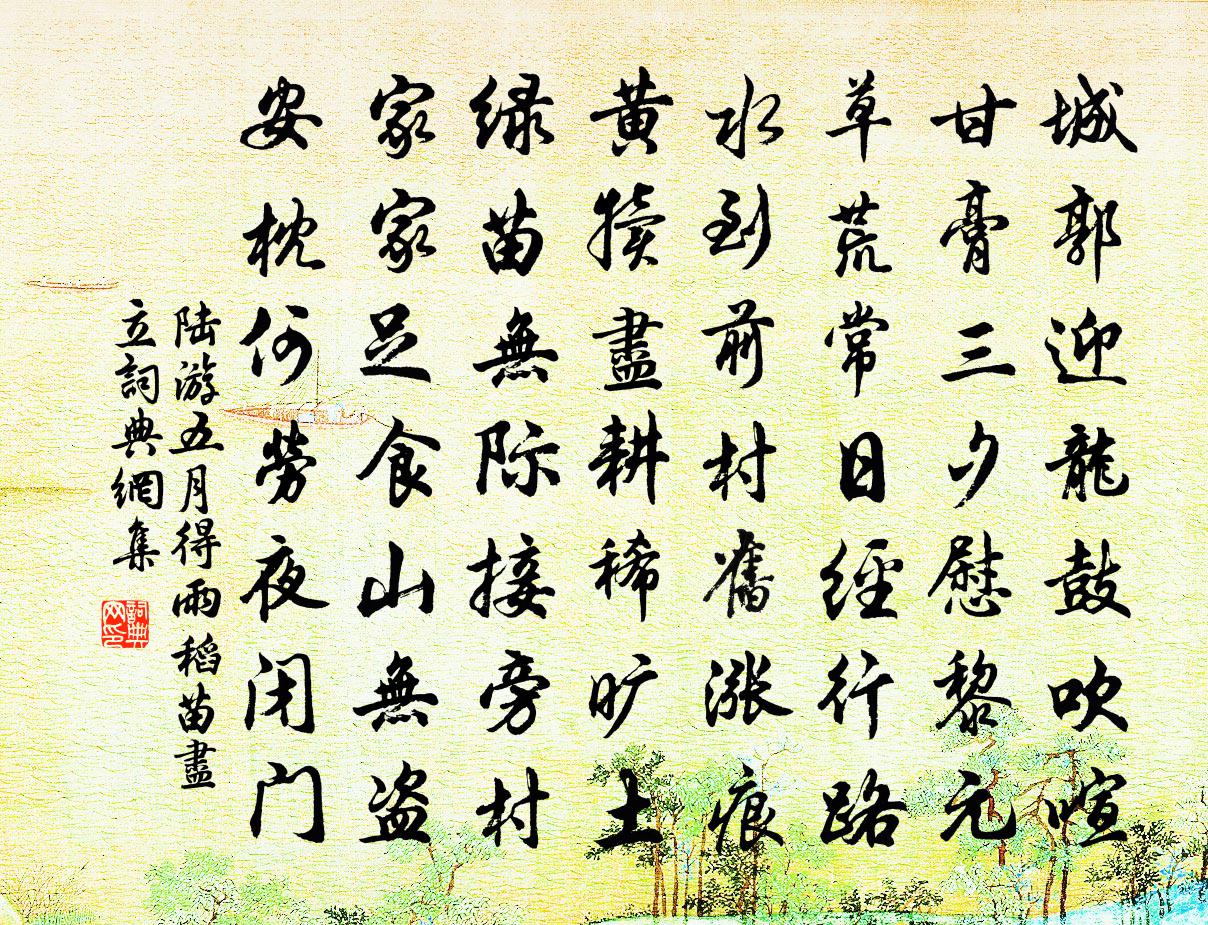 城郭迎龍鼓吹喧
甘膏三夕慰黎元
草荒常日經行路
水到前村舊漲痕
黄犢盡耕稀旷土
绿苗無际接旁村
家家足食山無盗
安枕何勞夜闭门
陆游五月得雨稻苗盡
立詞典網集
詞典网印